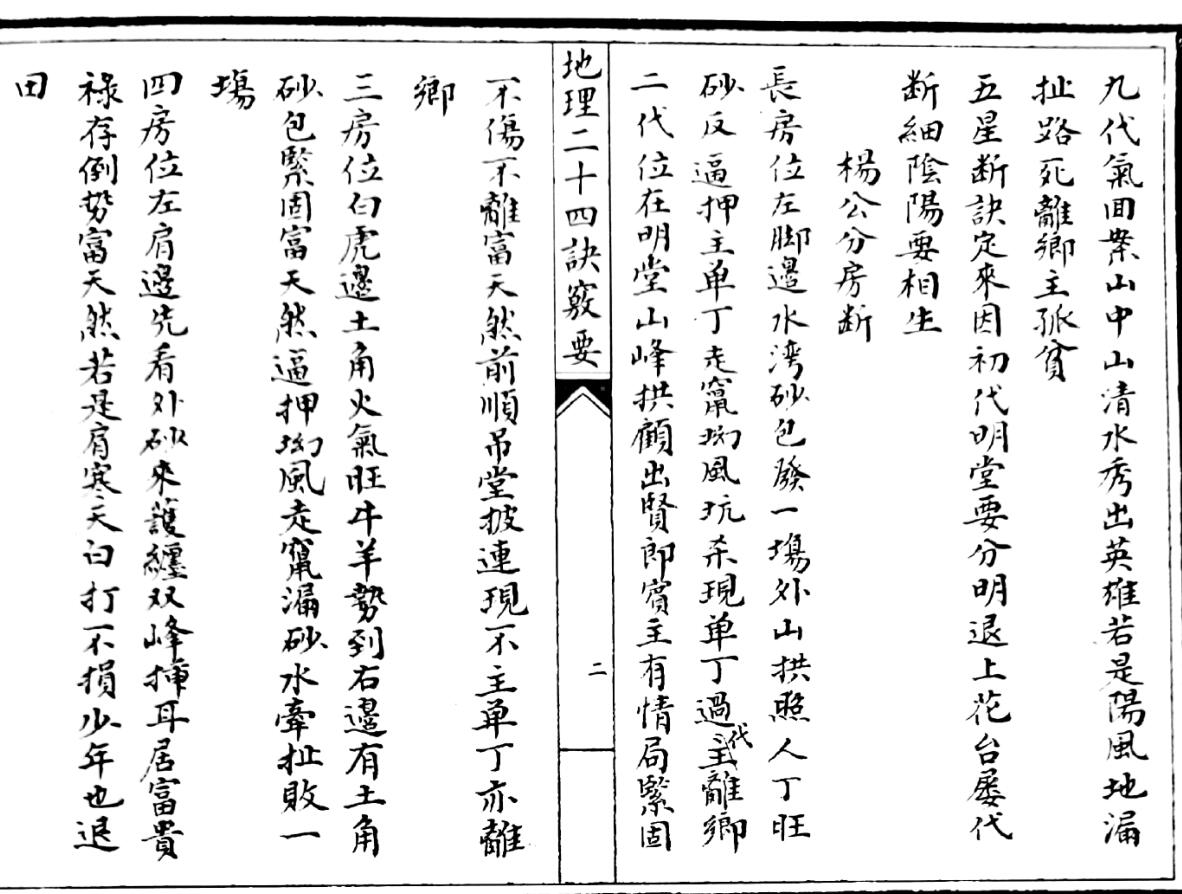 九代氣回案山中山清水秀出英雄若是陽風地漏
扯路死離鄉主孤貧
五星断訣定來因初代明堂要分明退上花台屡代
断細陰陽要相生
楊公分房断
長房位左脚邊水湾砂包發一塲外山拱照人丁旺
砂反逼押主单丁走竄坳风坑杀現单丁過代主離鄉
二代位在明堂山峰拱顧出賢郎賓主有情局緊固
地理二十四訣竅要
二
不傷不離富天然前順吊堂披連現不主单丁亦離
鄉
三房位白虎邊土角火氣旺牛羊勢到右邊有土角
砂包緊固富天然逼押坳風走竄漏砂水牽扯敗一
塲
四房位左肩邊先看外砂來護纏双峰揷耳居富貴
祿存倒势富天然若是肩寒天白打不損少年也退
田